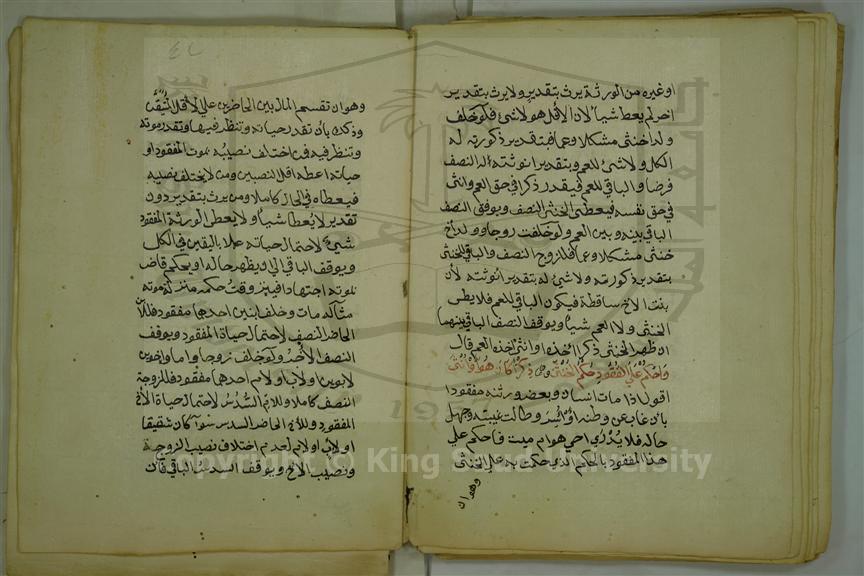 او غيره من الورثة يرث بتقدير ولا يرث بتقدير
اخر لم يعط شيأ لان الاقل هو لا شئ فلو خلف
ولدا خنثى مشكلا وعما فتقدير ذكورته له
الكل ولا شئ للعم وبتقدير انوثته له النصف
فرضا والباقي للعم فيقدر ذكرا في حق العم وانثى
في حق نفسه فيعطى الخنثى النصف ويوقف النصف
الباقي بينه وبين العم ولو خلفت زوجا وولد أخ
خنثى مشكلا وعما فللزوج النصف والباقي للخنثى
بتقدير ذكورته ولا شئ له بتقدير انوثته لأن
بنت الاخ ساقطة فيكون الباقي للعم فلا يعطى
الخنثى ولا العم شيأ ويوقف النصف الباقي بينهما
ان ظهر الخنثى ذكرا اخذه او انثى اخذه العم قال
وَاحْكُمْ عَلَى المَفْقُودِ حُكْمَ الخُنْثَى ذَكَرًا كَانَ هُوَ أَوْ أُنْثَى
اقول اذا مات انسان وبعض ورثته مفقود
بأن غاب عن وطنه او أُسِرَ وطالت غيبته وجهل
حاله فلا يُدْرَى احي هو ام ميت فاحكم علي
هذا المفقود بالحكم الذي حكمت به على الخنثى
وهو ان
وهو ان تقسم المال بين الحاضرين علي الأقل المُتَيَقَّن
وذلك بأن تقدر حياته وتنظر فيها وتقدر موته
وتنظر فيه فمن اختلف نصيبه بموت المفقود او
حياته اعطه اقل النصيبين ومن لا يختلف نصيبه
فيعطاه في الحال كاملا ومن يرث بتقدير دون
تقدير لا يُعطا شيأ ولا يعطى لورثة المفقود
شئ لاحتمال حياته عملا باليقين في الكل
ويوقف الباقي الى ان يظهر حاله او يحكم قاض
بموته اجتهادا فينزل وقت حكمه منزلة موته
مثاله مات وخلف ابنين احدهما مفقود فللابن
الحاضر النصف لاحتمال حياة المفقود ويوقف
النصف الآخر ولو خلف زوجا واما واخوين
لابوين او لاب او لام احدهما مفقود فللزوج
النصف كاملا وللام السُّدُس لاحتمال حياة الاخ
المفقود وللاخ الحاضر السدس سواء كان شقيقا
او لاب او لام لعدم اختلاف نصيب الزوج
ونصيب الاخ ويوقف السدسُ الباقي فان
Copyright © King Saud University